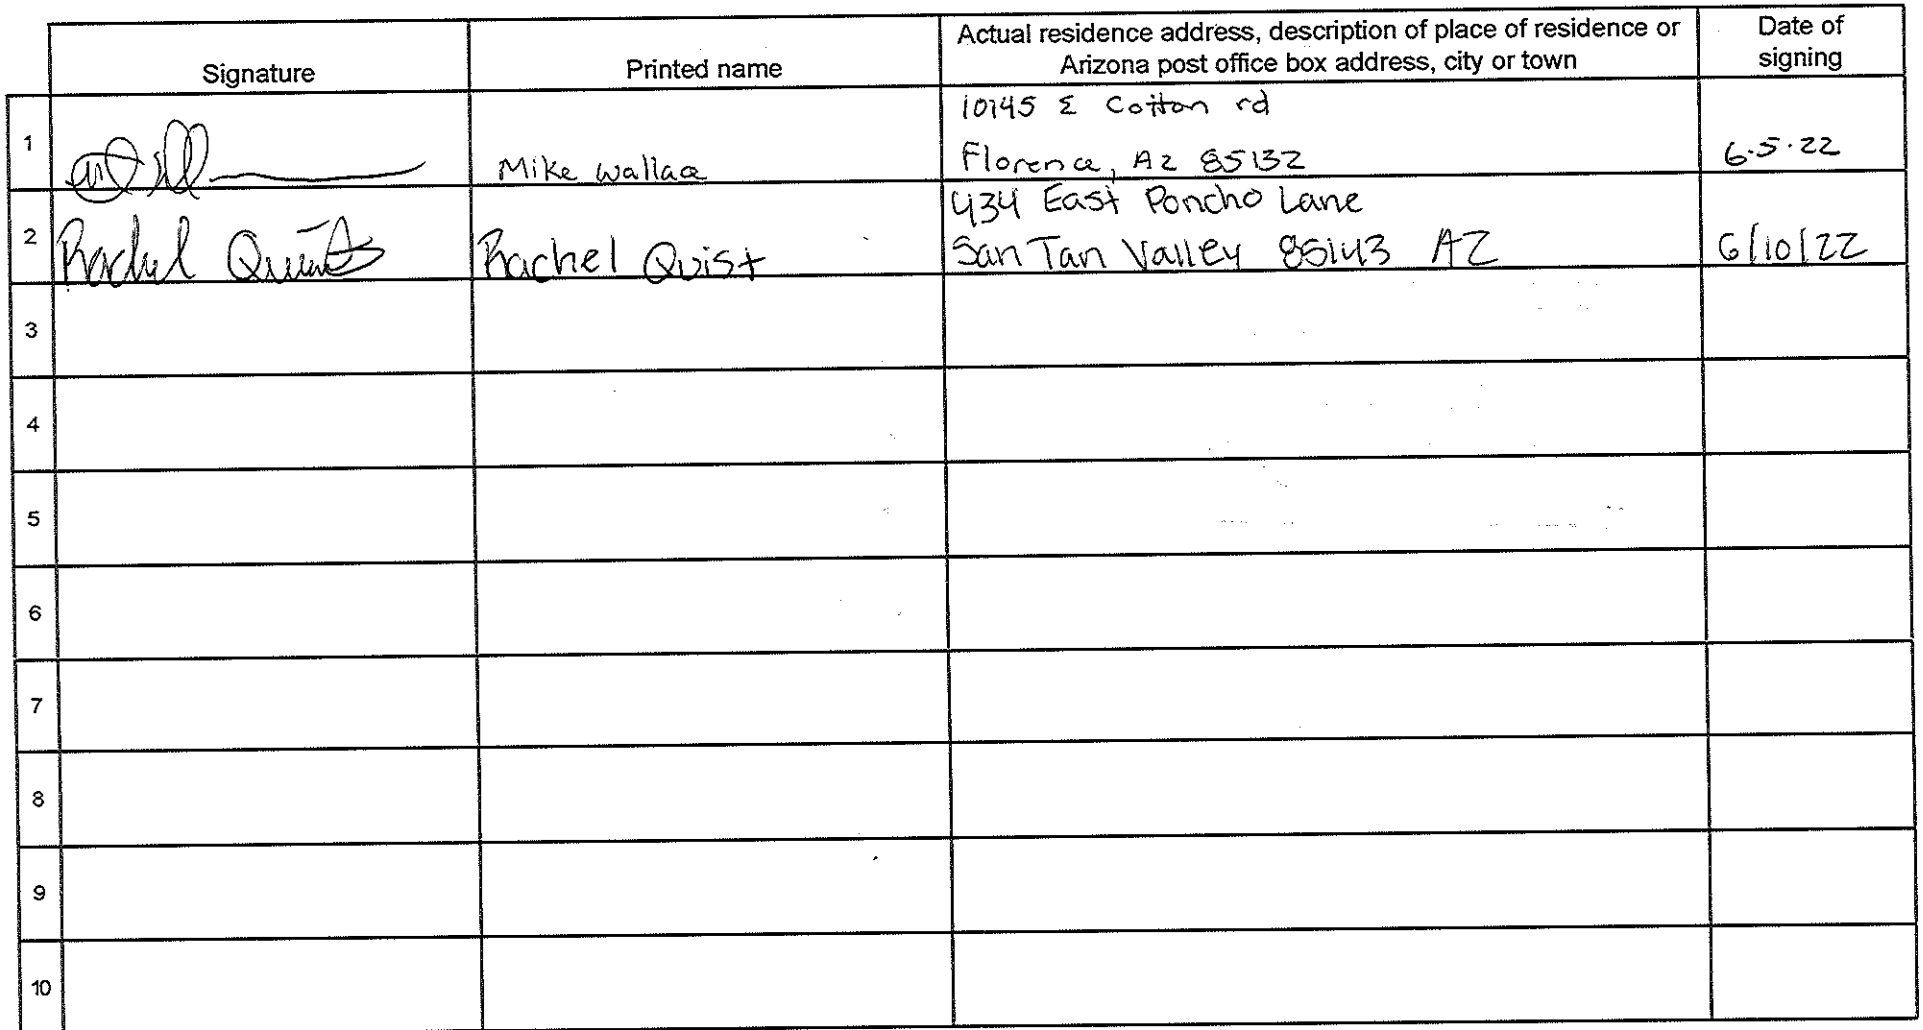 Signature
Printed name
Actual residence address, description of place of residence or
Arizona post office box address, city or town
Date of
signing
1
Mike Wallace
10745 E Cotton rd
Florence, Az 85132
6.5.22
2
Rachel Quist
Rachel Quist
434 East Poncho Lane
San Tan Valley 85143 AZ
6/10/22
3
4
5
6
7
8
9
10